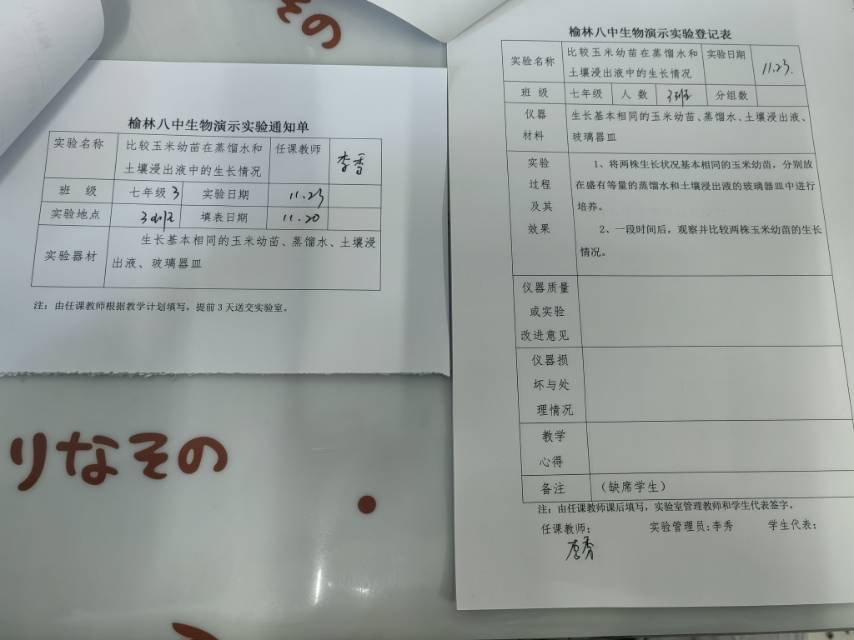 その
榆林八中生物演示实验通知单
实验名称 比较玉米幼苗在蒸馏水和 任课教师 李香
土壤浸出液中的生长情况
班 级 七年级 3 实验日期 11.23
实验地点 3班 填表日期 11.20
实验器材 生长基本相同的玉米幼苗、蒸馏水、土壤浸
出液、玻璃器皿
注：由任课教师根据教学计划填写，提前 3 天送交实验室。
りなその
榆林八中生物演示实验登记表
实验名称 比较玉米幼苗在蒸馏水和 实验日期 11.23.
土壤浸出液中的生长情况
班 级 七年级 人 数 3班 分组数
仪器 生长基本相同的玉米幼苗、蒸馏水、土壤浸出液、
材料 玻璃器皿
实验 1、将两株生长状况基本相同的玉米幼苗，分别放
过程 在盛有等量的蒸馏水和土壤浸出液的玻璃器皿中进行
及其 培养。
效果 2、一段时间后，观察并比较两株玉米幼苗的生长
情况。
仪器质量
或实验
改进意见
仪器损
坏与处
理情况
教学
心得
备注 （缺席学生）
注：由任课教师课后填写，实验室管理教师和学生代表签字。
任课教师： 实验管理员:李秀 学生代表：
李香